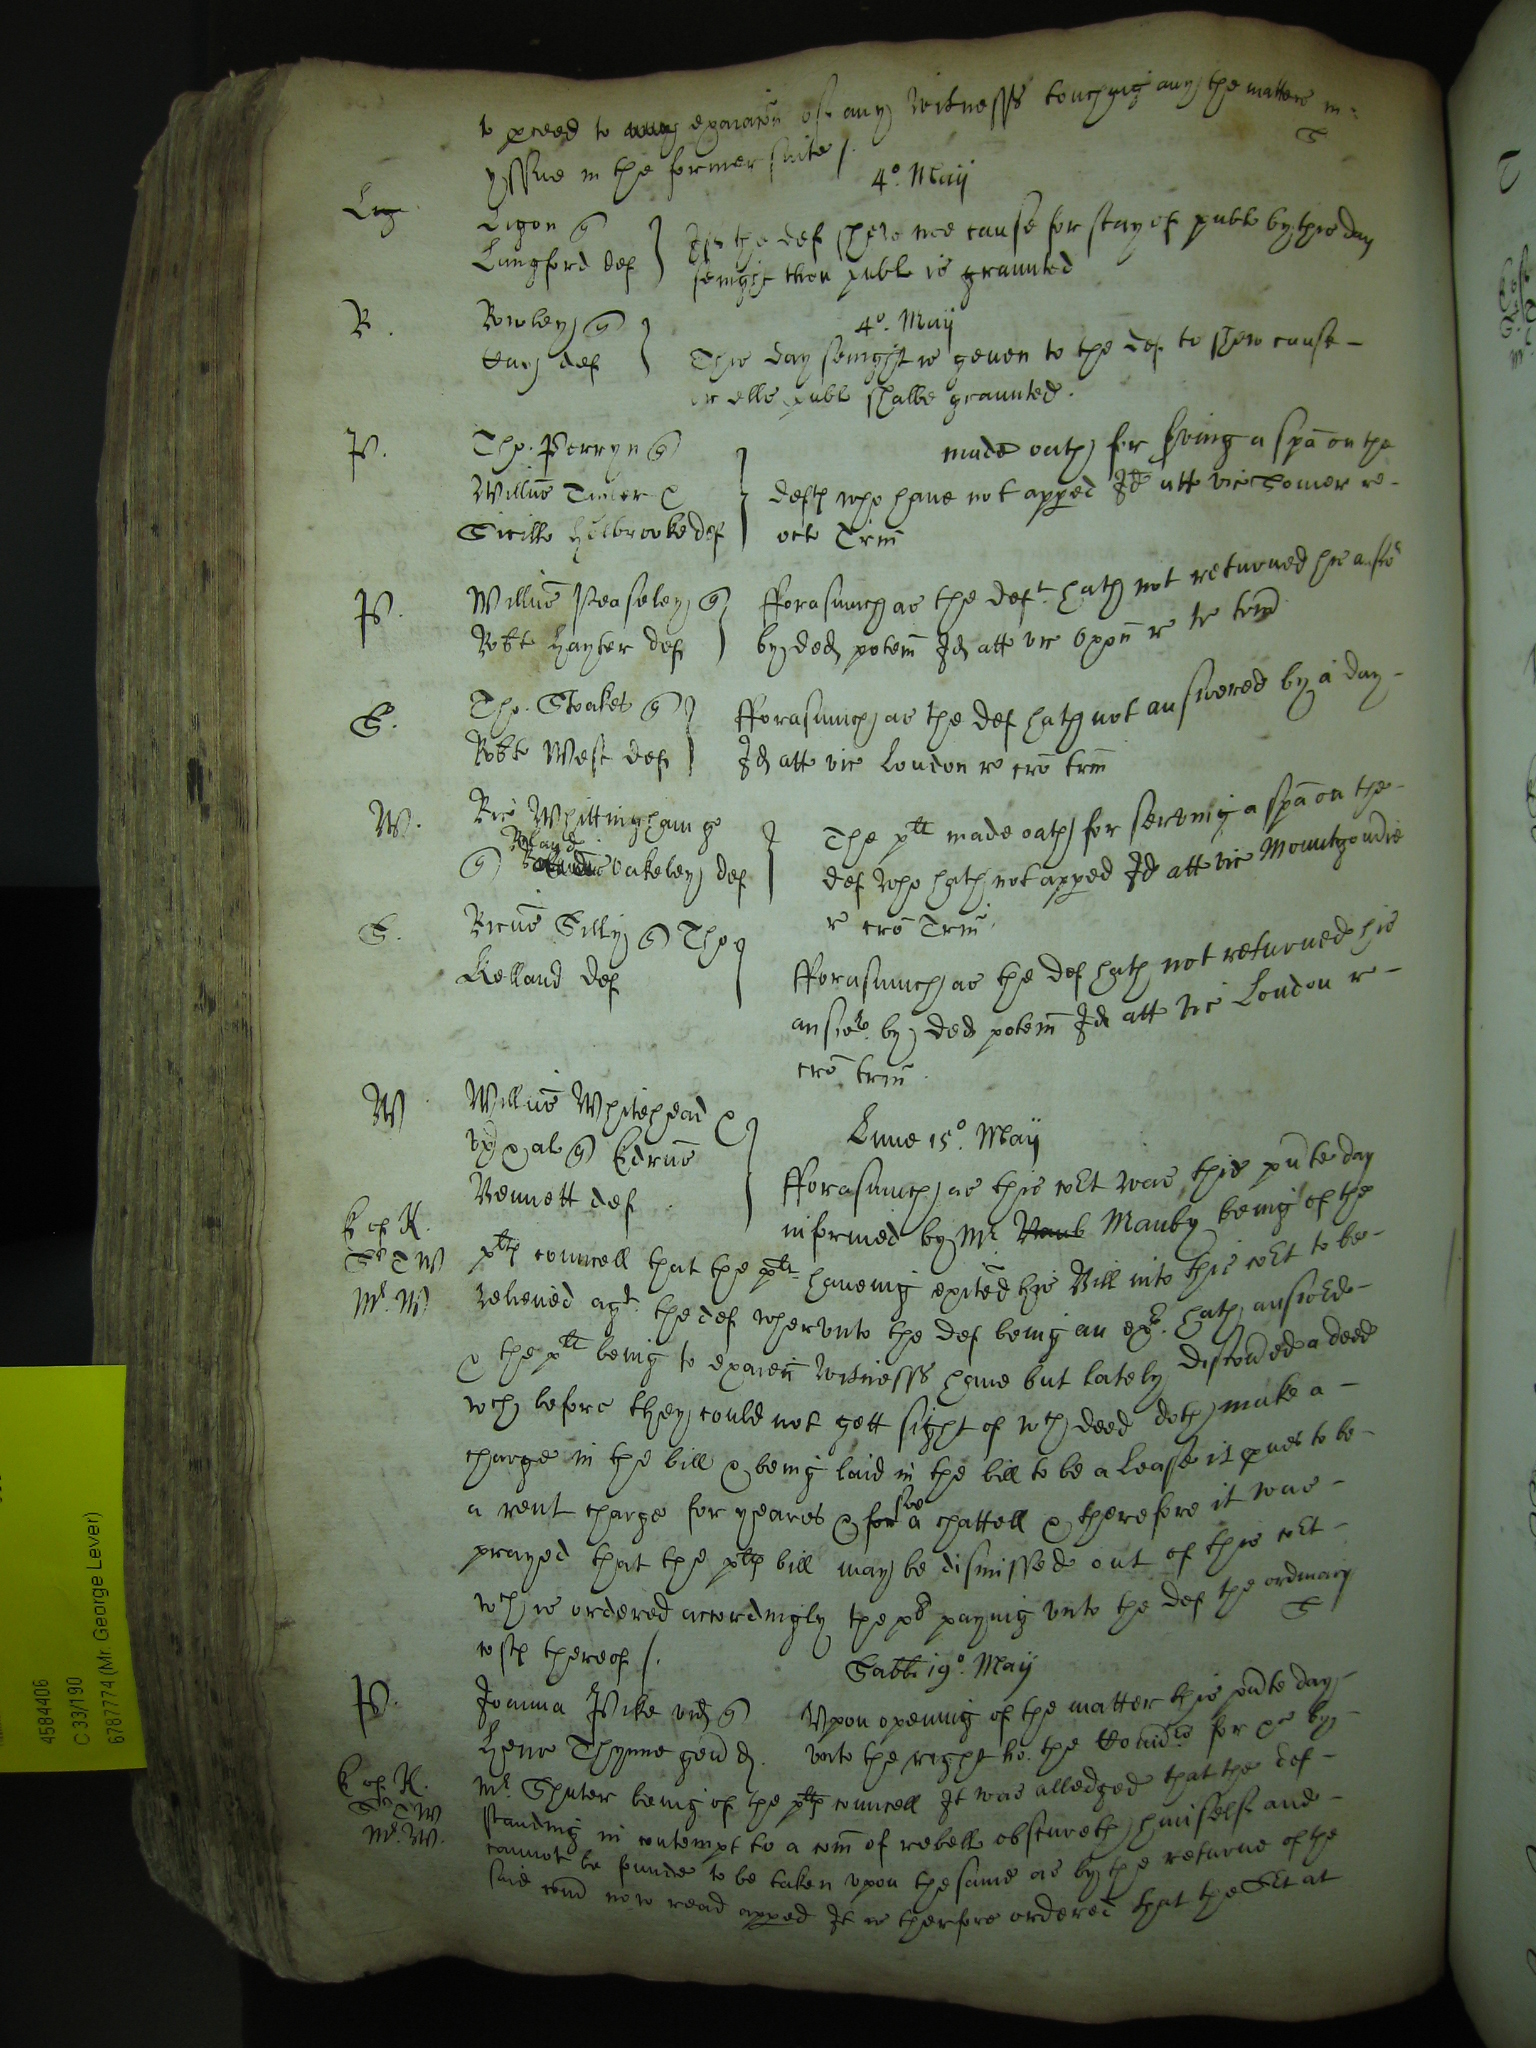 to pceed to any exaiacōn of any witnesses touching any the matters in
yssue in the former suite /.
4o. Maij
Lig
Ligon q
Langford def
If the def shewe noe cause for stay of publ by this day
senight then publ is graunted
R.
Rowley q
def
4o. Maij
This day senight is geven to the def to shew cause
or ells publ shalbe graunted.
P.
Tho. Perryn q
Willus Turner &
Sicille Holbrooke def
made oath for sving a spa on the
defts who have not apped Id att vic Somer re
octo Trin
P.
Willus Peaseley q
Robte Hayter def
fforasmuch as the deft. hath not returned his answ
by ded potem Id att vic Oxon re tr trin
S.
Tho. Stoakes q
Robte West def
fforasmuch as the def hath not answered by a day
Id att vic London re cro trin
W.
Ric Whittingham g
Roland
q Oakeley def
The plt made oath for serving a spa on the
def who hath not apped Id att vic Mountgomrie
r cro Trin
S.
Ricus Silly q Tho
Kelland def
fforasmuch as the def hath not returned his
answe by ded potem Id att vic London r
cro trin
W
Willus Whitehead &
ux & al q Edrus
Bennett def
Lune 15o. Maij
fforasmuch as this cort was this pnte day
informed by Mr. Vaub Manby being of the
K of R.
Sr T W
Mr. W
plts councell that the plt haveing exited his Bill into this cort to be
Releived agt. the def wherunto the def being an exr. hath answered
& the plt being to exaien witnesses have but lately discoved a deed
wch before they could not gett sight of wch deed doth make a
charge in the bill & being laid in the bill to be a Lease it pves to be
a rent charge for yeares & for soe a chattell & therefore it was
prayed that the plts bill may be dismissed out of this cort
wch is ordered accordingly the plt paying unto the def the ordinary
costs thereof /.
Sabbi 19o. Maij
P.
Joanna Pike vid q
Henr Thynne gen d.
Upon opening of the matter this pnte day
unto the right ho. the for &c by
K of R.
Sr T W
Mr. W.
Mr. Shuter being of the plts councell It was alledged that the def
standing in contempt to a com of rebell obscureth himself and
cannot be founde to be taken upon the same as by the returne of the
said com now read apped It is therfore ordered that the Sct at
4584406
C 33/190
6787774 (Mr. George Lever)